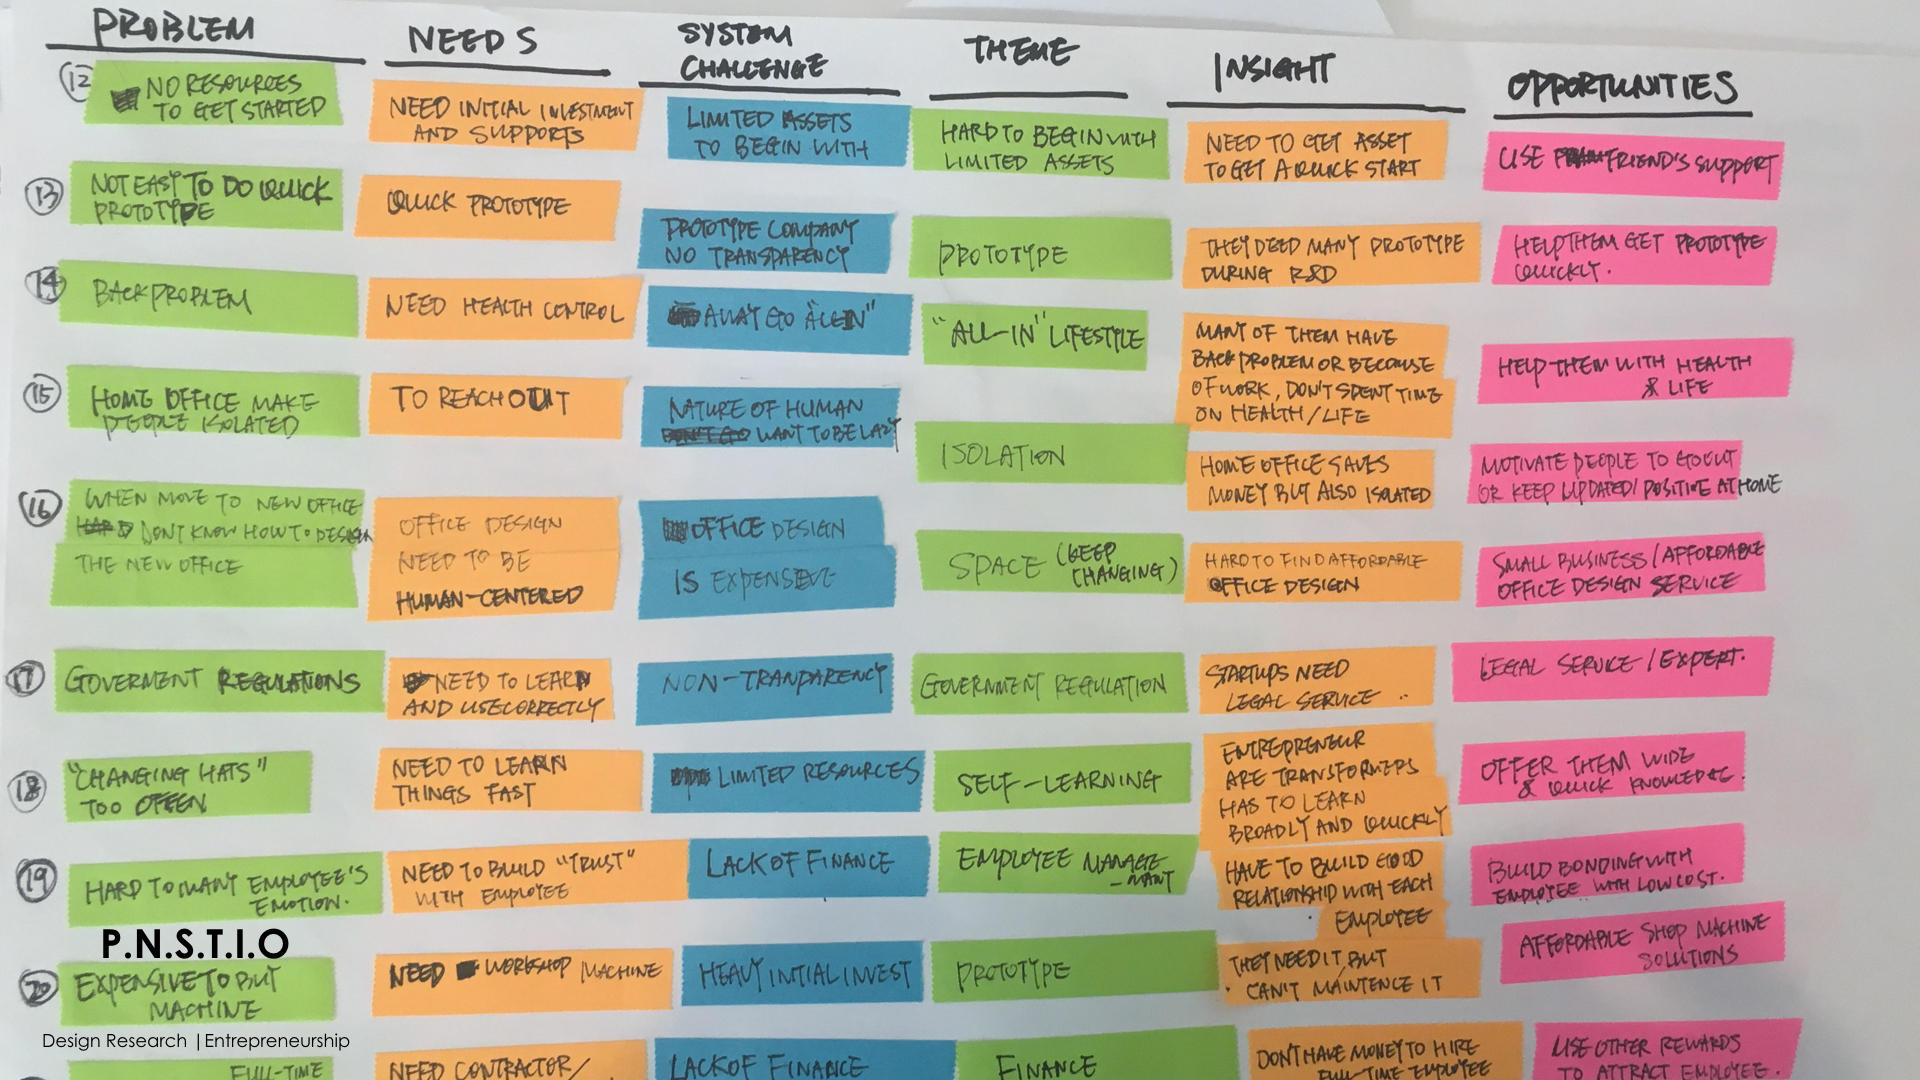 PROBLEM
NEEDS
SYSTEM
CHALLENGE
THEME
INSIGHT
OPPORTUNITIES
12
NO RESOURCES
TO GET STARTED
NEED INITIAL INVESTMENT
AND SUPPORTS
LIMITED ASSETS
TO BEGIN WITH
HARD TO BEGIN WITH
LIMITED ASSETS
NEED TO GET ASSET
TO GET A QUICK START
USE FRIEND'S SUPPORT
13
NOT EASY TO DO QUICK
PROTOTYPE
QUICK PROTOTYPE
PROTOTYPE COMPANY
NO TRANSPARENCY
PROTOTYPE
THEY DEED MANY PROTOTYPE
DURING R&D
HELP THEM GET PROTOTYPE
QUICKLY.
14
BACK PROBLEM
NEED HEALTH CONTROL
AWAY GO "ALL IN"
"ALL-IN" LIFESTYLE
MANY OF THEM HAVE
BACK PROBLEM OR BECAUSE
OF WORK, DON'T SPENT TIME
ON HEALTH/LIFE
HELP THEM WITH HEALTH
& LIFE
15
HOME OFFICE MAKE
PEOPLE ISOLATED
TO REACH OUT
NATURE OF HUMAN
WANT TO BE LAZY
ISOLATION
HOME OFFICE SAVES
MONEY BUT ALSO ISOLATED
MOTIVATE PEOPLE TO GO OUT
OR KEEP UPDATED/POSITIVE AT HOME
16
WHEN MOVE TO NEW OFFICE
DON'T KNOW HOW TO DESIGN
THE NEW OFFICE
OFFICE DESIGN
NEED TO BE
HUMAN-CENTERED
OFFICE DESIGN
IS EXPENSIVE
SPACE (KEEP
CHANGING)
HARD TO FIND AFFORDABLE
OFFICE DESIGN
SMALL BUSINESS/AFFORDABLE
OFFICE DESIGN SERVICE
17
GOVERMENT REGULATIONS
NEED TO LEARN
AND USE CORRECTLY
NON-TRANPARENCY
GOVERNMENT REGULATION
STARTUPS NEED
LEGAL SERVICE ..
LEGAL SERVICE / EXPERT.
18
"CHANGING HATS"
TOO OFTEN
NEED TO LEARN
THINGS FAST
LIMITED RESOURCES
SELF-LEARNING
ENTREPRENEUR
ARE TRANSFORMERS
HAS TO LEARN
BROADLY AND QUICKLY
OFFER THEM WIDE
& QUICK KNOWLEDGE.
19
HARD TO MANY EMPLOYEE'S
EMOTION.
NEED TO BUILD "TRUST"
WITH EMPLOYEE
LACK OF FINANCE
EMPLOYEE MANAGE
-MANT
HAVE TO BUILD GOOD
RELATIONSHIP WITH EACH
EMPLOYEE
BUILD BONDING WITH
EMPLOYEE WITH LOW COST.
P.N.S.T.I.O
20
EXPENSIVE TO BUY
MACHINE
NEED WORKSHOP/MACHINE
HEAVY INTIAL INVEST
PROTOTYPE
THEY NEED IT BUT
CAN'T MAINTENCE IT
AFFORDABLE SHOP MACHINE
SOLUTIONS
Design Research |Entrepreneurship
FULL-TIME
NEED CONTRACTOR/
LACK OF FINANCE
FINANCE
DON'T HAVE MONEY TO HIRE
FULL-TIME EMPLOYEE
USE OTHER REWARDS
TO ATTRACT EMPLOYEE.